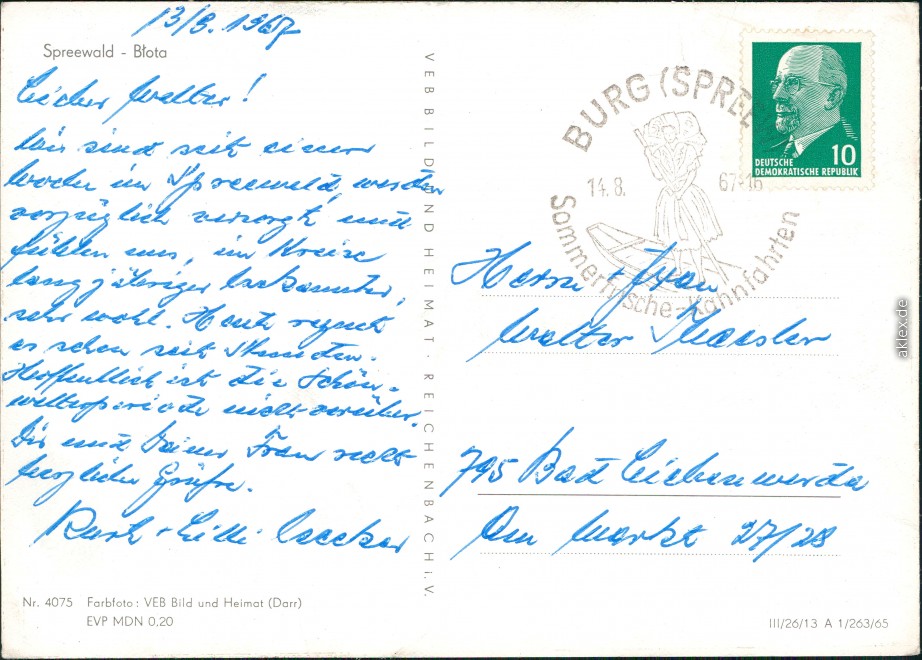 13/8. 1967
Spreewald - Błota
Lieber Walter!
Wir sind seit einer
Woche im Spreewald, werden
vorzüglich versorgt und
fühlen uns, im Kreise
langjähriger Bekannter,
sehr wohl. Heute regnet
es schon seit Stunden.
Hoffentlich ist die Schön-
wetterperiode nicht vorüber.
Dir und Deiner Frau recht
herzliche Grüße.
Kurt + Lilli
Nr. 4075 Farbfoto: VEB Bild und Heimat (Darr)
EVP MDN 0,20
VEB BILD UND HEIMAT · REICHENBACH i. V.
BURG (SPREE
14.8. 67-16
Sommerfrische-Kahnfahrten
10
DEUTSCHE
DEMOKRATISCHE REPUBLIK
Herrn + Frau
Walter
795 Bad Liebenwerda
Am Markt 27/28
III/26/13 A 1/263/65
aklex.de